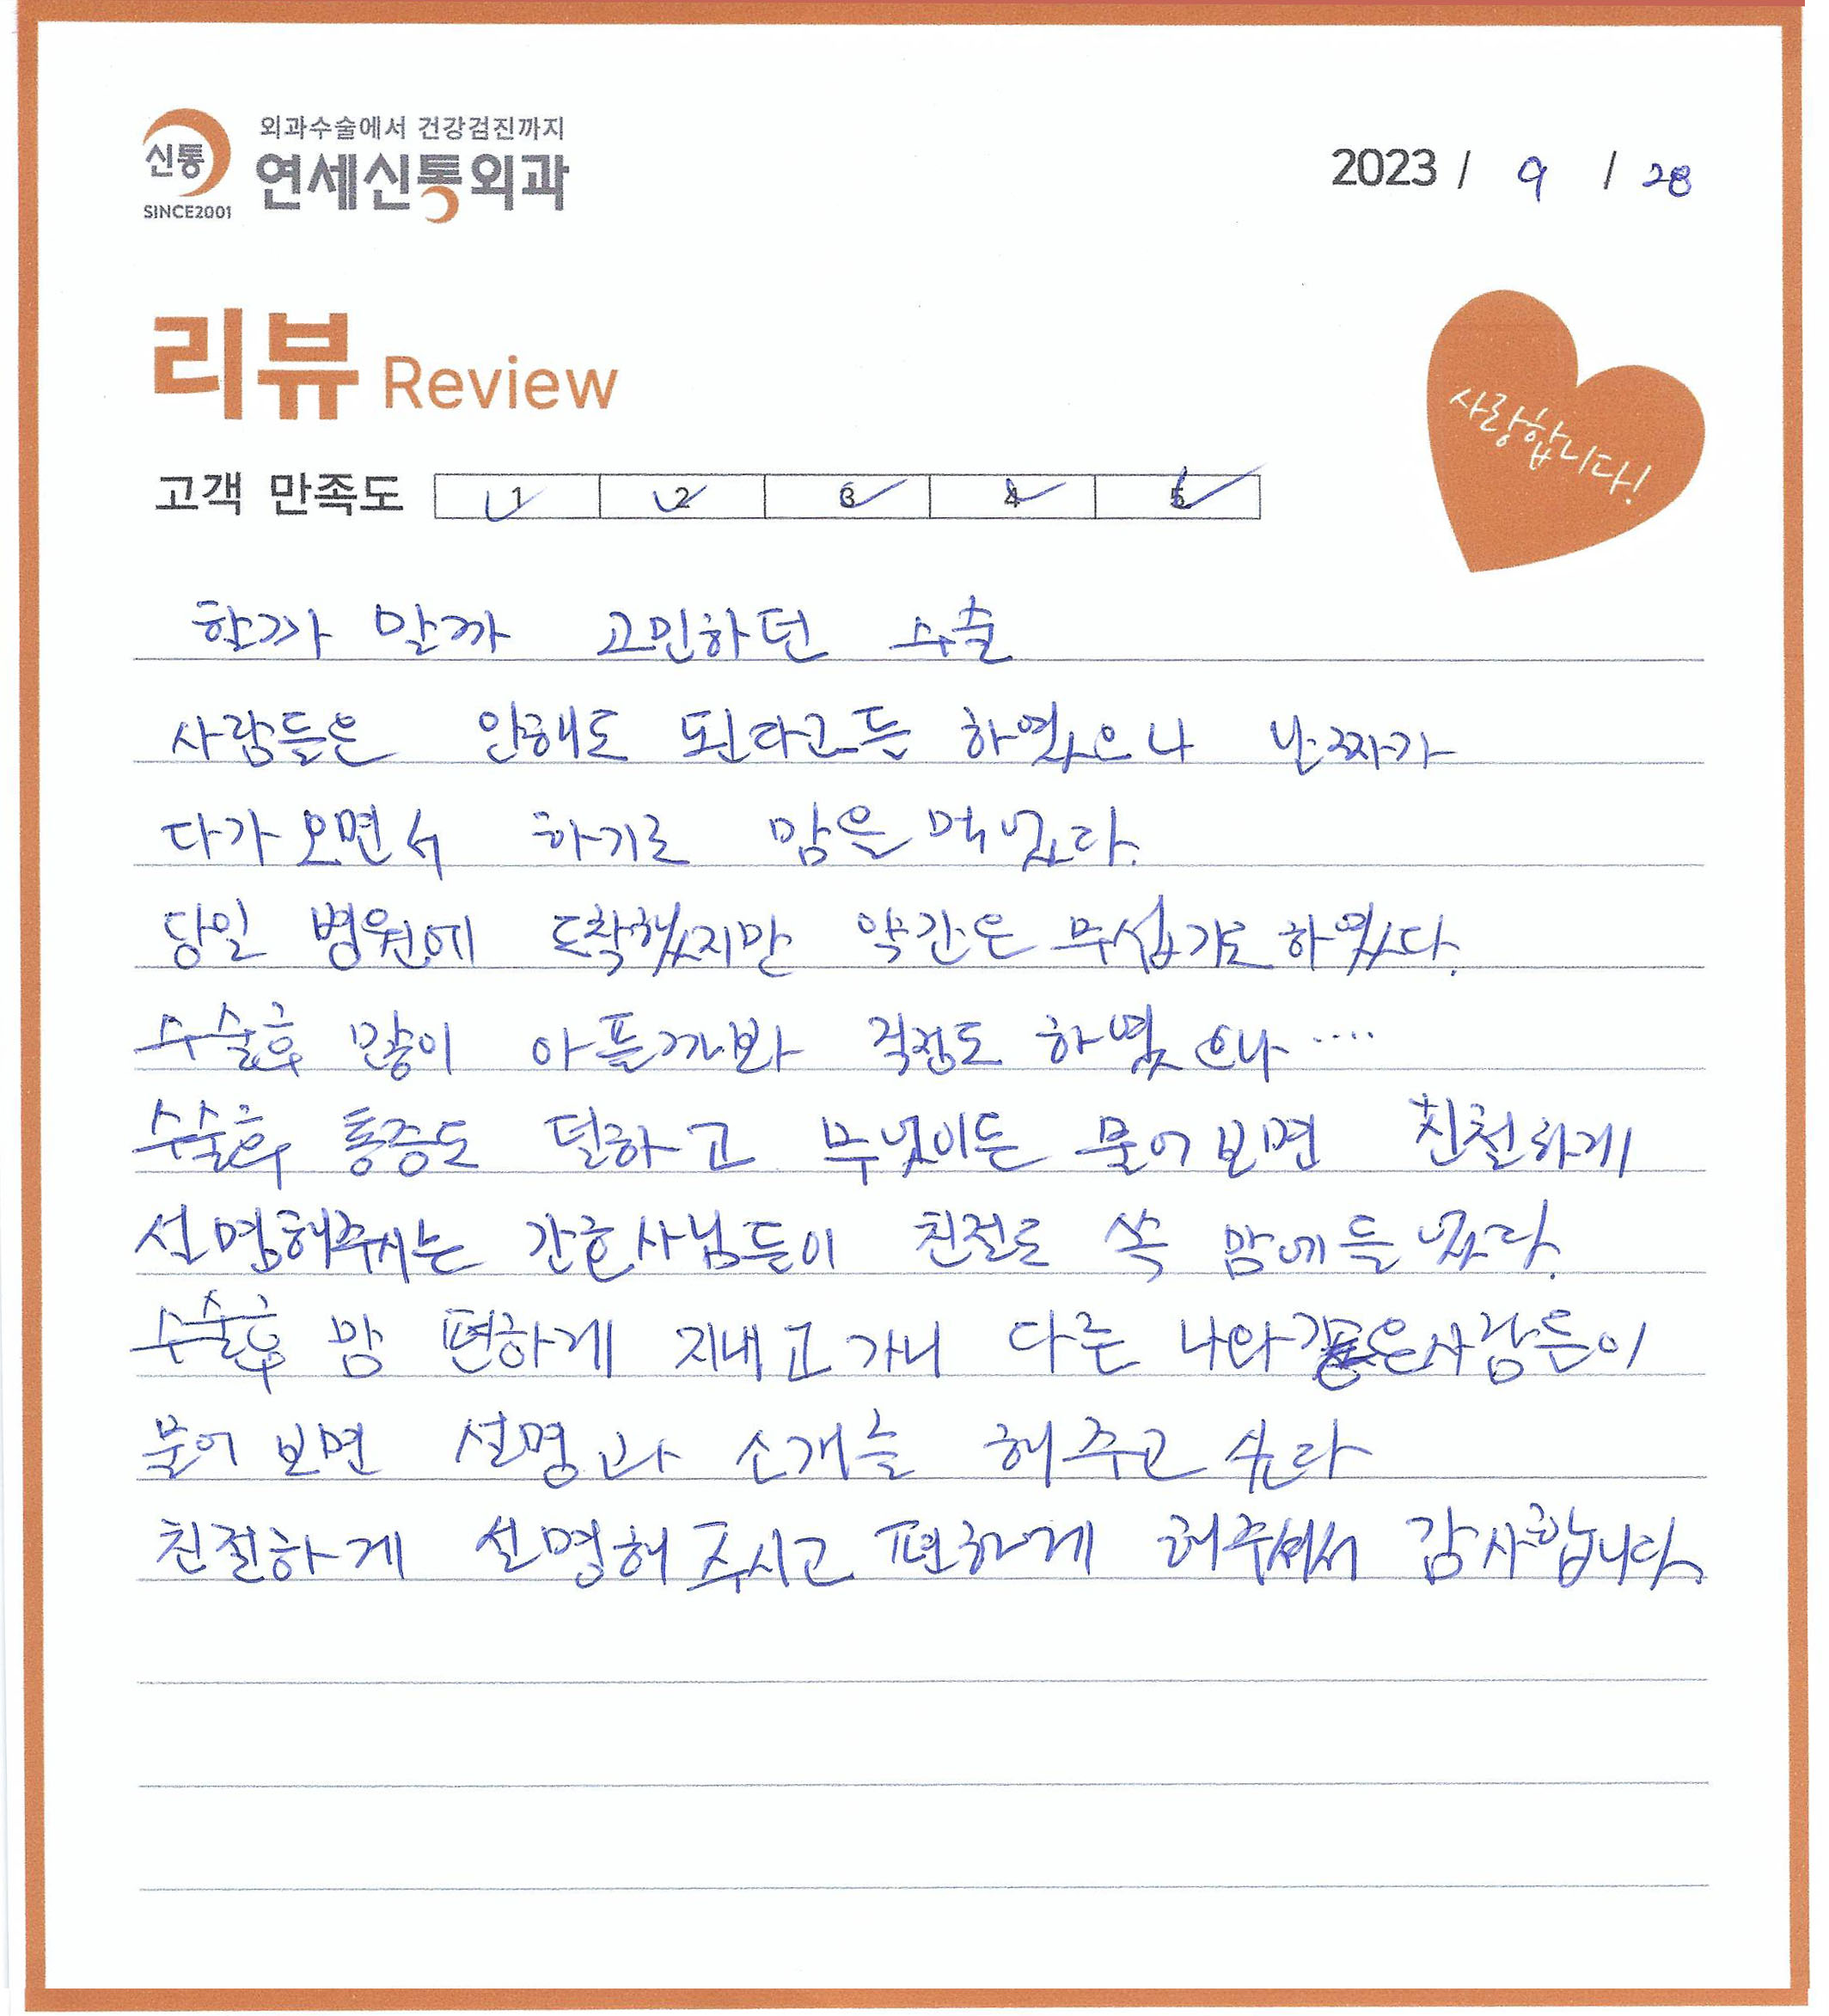 신통
SINCE2001
외과수술에서 건강검진까지
연세신통외과
2023 / 9 / 28
리뷰 Review
사랑합니다!
고객 만족도 1 2 3 4 5
할까 말까 고민하던 수술
사람들은 안해도 된다고들 하였으나 날짜가
다가오면서 하기로 맘을 먹었다.
당일 병원에 도착했지만 약간은 무섭기도 하였다.
수술후 많이 아플까봐 걱정도 하였으나....
수술후 통증도 덜하고 무엇이든 물어보면 친절하게
설명해주시는 간호사님들이 친절로 쏙 맘에들었다.
수술후 맘 편하게 지내고 가니 다른 나와 같은사람들이
물어보면 설명과 소개를 해주고 싶다
친절하게 설명해주시고 편하게 해주셔서 감사합니다.